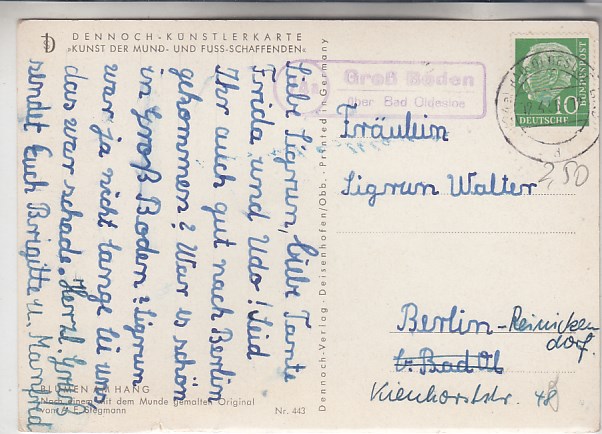 DENNOCH-KÜNSTLERKARTE
»KUNST DER MUND- UND FUSS-SCHAFFENDEN«
Liebe Sigrun, liebe Tante
Frida und Udo! Seid
Ihr auch gut nach Berlin
gekommen? War es schön
in Groß Boden? Sigrun
war ja nicht lange bei uns
das war schade. Herzl. Grüße
sendet Euch Brigitte u. Manfred
BLUMEN AM HANG
Nach einem mit dem Munde gemalten Original
von A. E. Stegmann
Nr. 443
Dennoch-Verlag · Deisenhofen/Obb. · Printed in Germany
Groß Boden
über Bad Oldesloe
10
DEUTSCHE
BUNDESPOST
Fräulein
Sigrun Walter
2,50
Berlin-Reinicken
dorf.
b. Bad Ol
Kienhorststr. 48